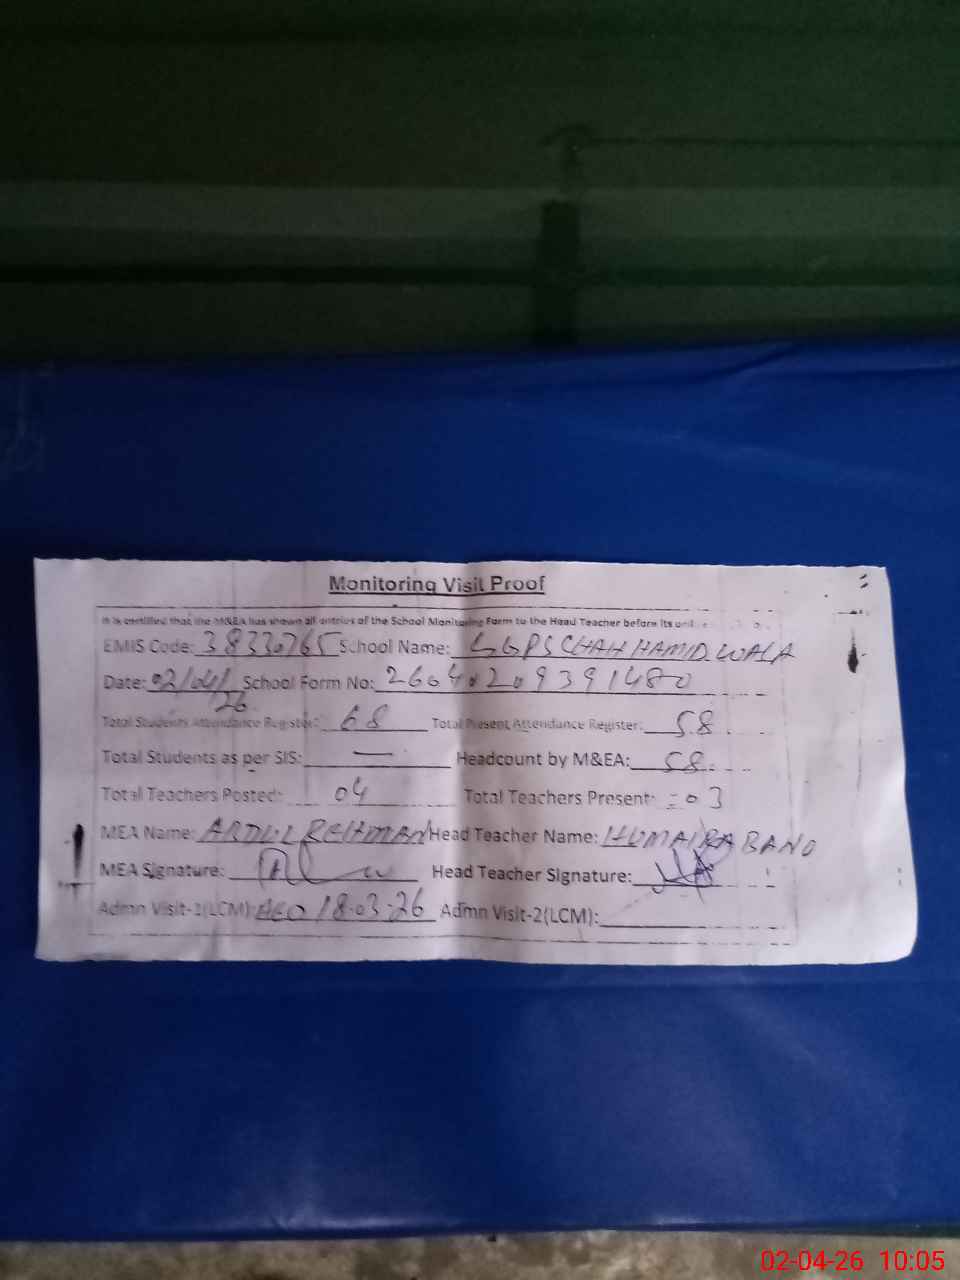 Monitoring Visit Proof
It is certified that the M&EA has shown all entries of the School Monitoring Form to the Head Teacher before its
EMIS Code: 38330765 School Name: GGPS CHAH HAMID WALA
Date: 02/04/26 School Form No: 26040209391480
Total Students Attendance Register: 68 Total Present Attendance Register: 58
Total Students as per SIS: — Headcount by M&EA: 58
Total Teachers Posted: 04 Total Teachers Present: 03
MEA Name: ABDUL REHMAN Head Teacher Name: HUMAIRA BANO
MEA Signature: Head Teacher Signature:
Admn Visit-1(LCM): AEO 18-03-26 Admn Visit-2(LCM):
02-04-26 10:05